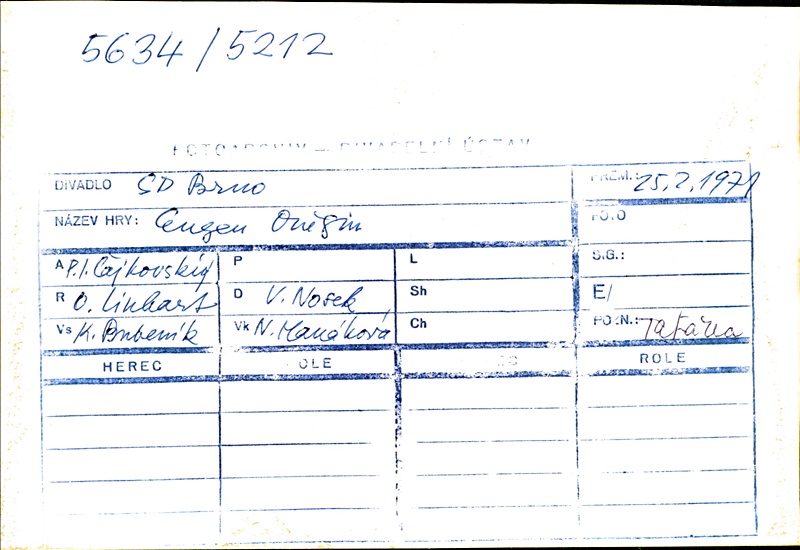 5634/5212
FOTOARCHIV — DIVADELNÍ ÚSTAV
DIVADLO SD Brno PREM.: 25.2.1971
NÁZEV HRY: Eugen Oněgin FOTO
A P.I. Čajkovskij P L S.G.:
R O. Linhart D V. Nosek Sh E/
Vs K. Bubeník Vk N. Hanáková Ch POZN.: Taťána
HEREC OLE ROLE